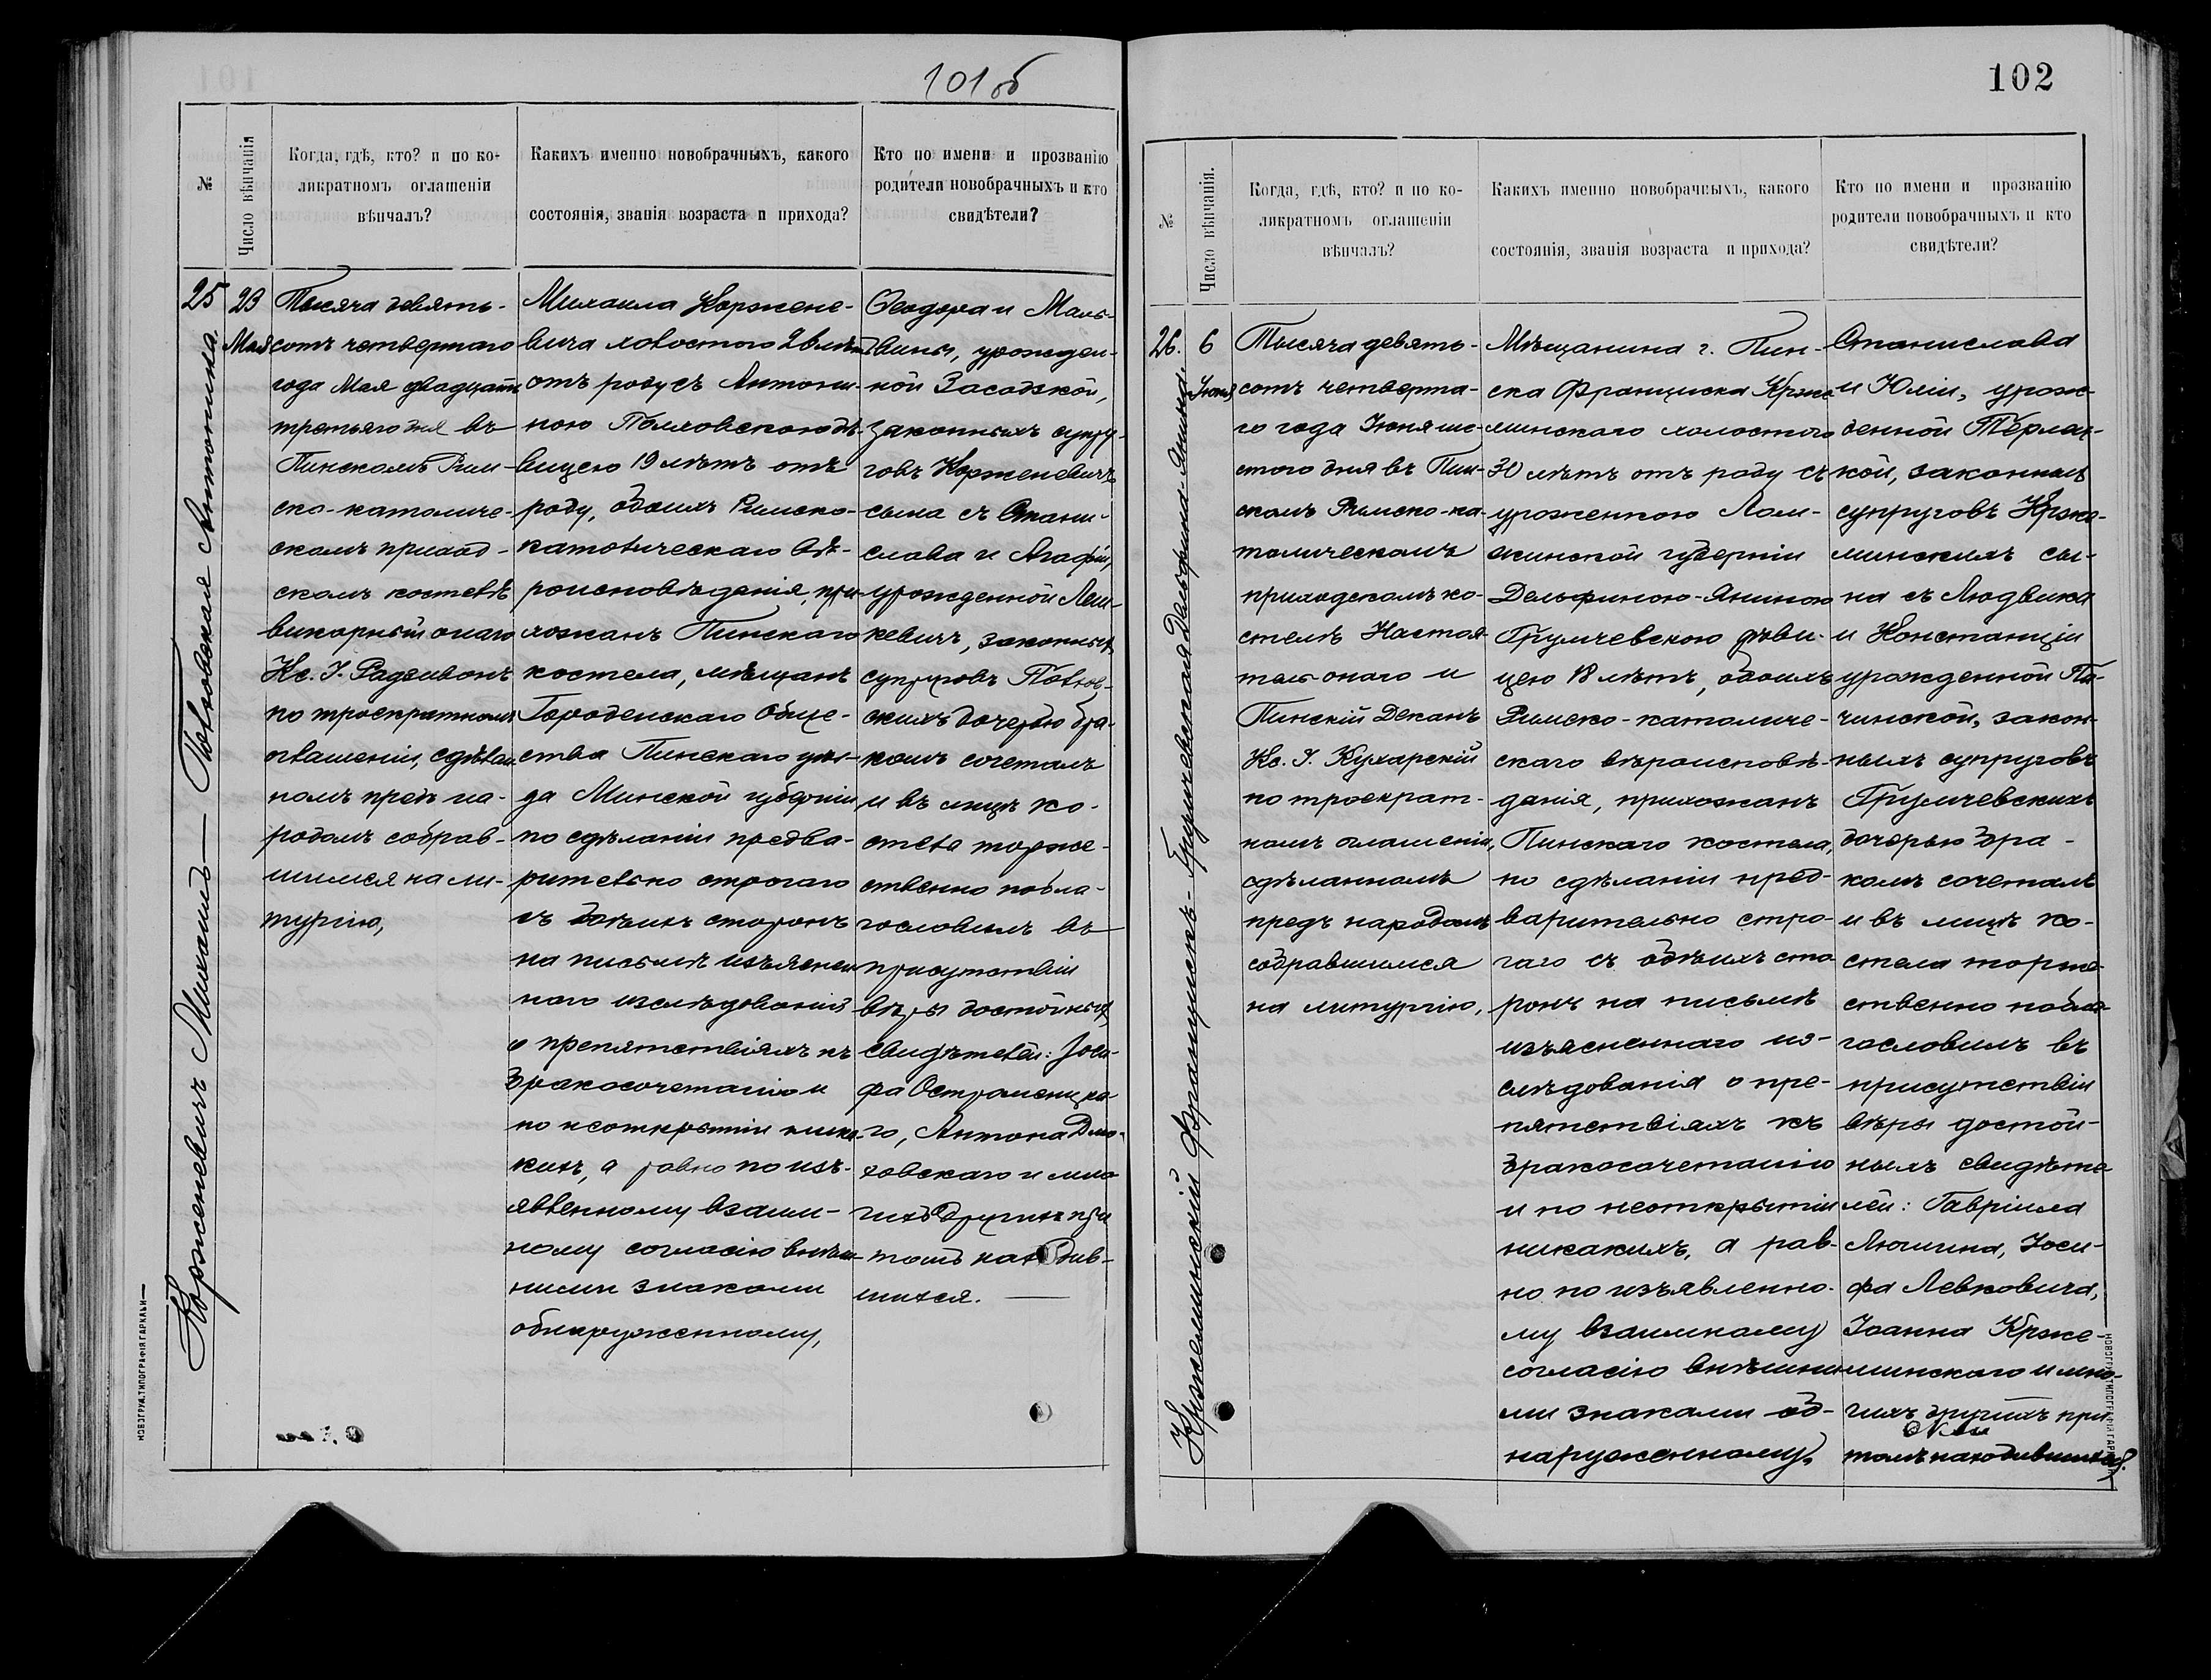 101об
№
Число вѣнчанія
Когда, гдѣ, кто? и по ко-
ликратномъ оглашеніи
вѣнчалъ?
Какихъ именно новобрачныхъ, какого
состоянія, званія возраста и прихода?
Кто по имени и прозванію
родители новобрачныхъ и кто
свидѣтели?
25
Корженевичъ Михаилъ —
Антонина
23
Мая
Тысяча девять-
сотъ четвертаго
года Мая двадцать
третьяго дня въ
Пинскомъ Рим-
ско-католиче-
скомъ приход-
скомъ костелѣ
викарный онаго
Кс. І. Радзивонъ
по троекратномъ
оглашеніи, сдѣлан-
номъ предъ на-
родомъ собрав-
шимся на ли-
тургію,
Михаила Коржене-
вича холостого 26 лѣтъ
отъ роду съ Антони-
ною дѣ-
вицею 19 лѣтъ отъ
роду, обоихъ Римско-
католическаго вѣ-
роисповѣданія, при-
хожанъ Пинскаго
костела, мѣщанъ
Городенскаго обще-
ства Пинскаго уѣз-
да Минской губерніи
по сдѣланіи предва-
рительно строгаго
съ обѣихъ сторонъ
на письмѣ изъяснен-
наго изслѣдованія
о препятствіяхъ къ
бракосочетанію и
по неоткрытіи ника-
кихъ, а равно по изъ-
явленному взаим-
ному согласію внѣш-
ними знаками
обнаруженному,
Ѳеодора и Маль-
вины, урожден-
ной Засадзкой,
законныхъ супру-
говъ Корженевичъ
сына съ Стани-
слава и Агафіи,
урожденной Леш-
кевичъ, законныхъ
супруговъ
скихъ дочерью бра-
комъ сочеталъ
и въ лицѣ ко-
стела торже-
ственно побла-
гословилъ въ
присутствіи
вѣры достойныхъ
свидѣтелей: Іоси-
фа Остромецка-
го, Антона Дмо-
ховскаго и мно-
гихъ другихъ при
томъ находив-
шихся.
НОВОГРУД. ТИПОГРАФІЯ ГАРКАВИ
102
№
Число вѣнчанія.
Когда, гдѣ, кто? и по ко-
ликратномъ оглашеніи
вѣнчалъ?
Какихъ именно новобрачныхъ, какого
состоянія, званія возраста и прихода?
Кто по имени и прозванію
родители новобрачныхъ и кто
свидѣтели?
26.
Кржеминскій Францискъ - Грумчевская Дельфина-Янина
6
Іюня
Тысяча девять-
сотъ четверта-
го года Іюня ше-
стого дня въ Пин-
скомъ Римско-ка-
толическомъ
приходскомъ ко-
стелѣ Настоя-
тель онаго и
Пинскій Деканъ
Кс. І. Кухарскій
по троекрат-
номъ оглашеніи,
сдѣланномъ
предъ народомъ
собравшимся
на литургію,
Мѣщанина г. Пин-
ска Франциска Крже-
минскаго холостого
30 лѣтъ отъ роду съ
уроженкою Лом-
жинской губерніи
Дельфиною-Яниною
Грумчевскою дѣви-
цею 18 лѣтъ, обоихъ
Римско-католиче-
скаго вѣроисповѣ-
данія, прихожанъ
Пинскаго костела,
по сдѣланіи пред-
варительно стро-
гаго съ обѣихъ сто-
ронъ на письмѣ
изъясненнаго из-
слѣдованія о пре-
пятствіяхъ къ
бракосочетанію
и по неоткрытіи
никакихъ, а рав-
но по изъявленно-
му взаимному
согласію внѣшни-
ми знаками об-
наруженному,
Станислава
и Юліи, урож-
денной Терлец-
кой, законныхъ
супруговъ Крже-
минскихъ сы-
на съ Людвика
и Констанціи
урожденной Па-
чинской, закон-
ныхъ супруговъ
Грумчевскихъ
дочерью бра-
комъ сочеталъ
и въ лицѣ ко-
стела торже-
ственно побла-
гословилъ въ
присутствіи
вѣры достой-
ныхъ свидѣте-
лей: Гавріила
Іоси-
фа Левковича,
Іоанна Крже-
минскаго и мно-
гихъ другихъ при
томъ находившихся.